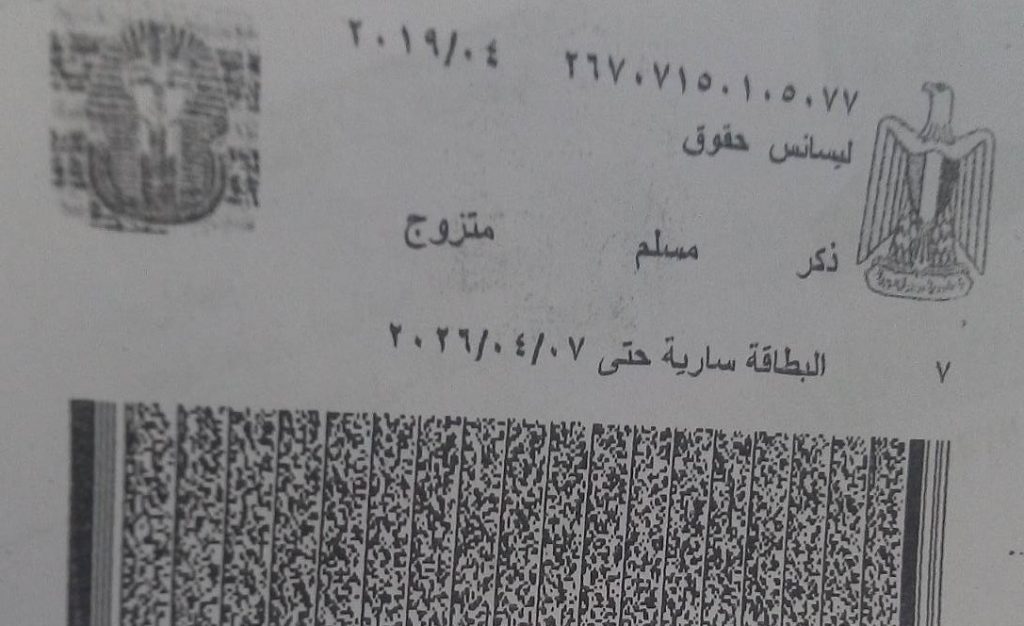 ٢٦٧٠٧١٥٠١٠٥٠٧٧ ٢٠١٩/٠٤
ليسانس حقوق
ذكر مسلم متزوج
البطاقة سارية حتى ٢٠٢٦/٠٤/٠٧
٧